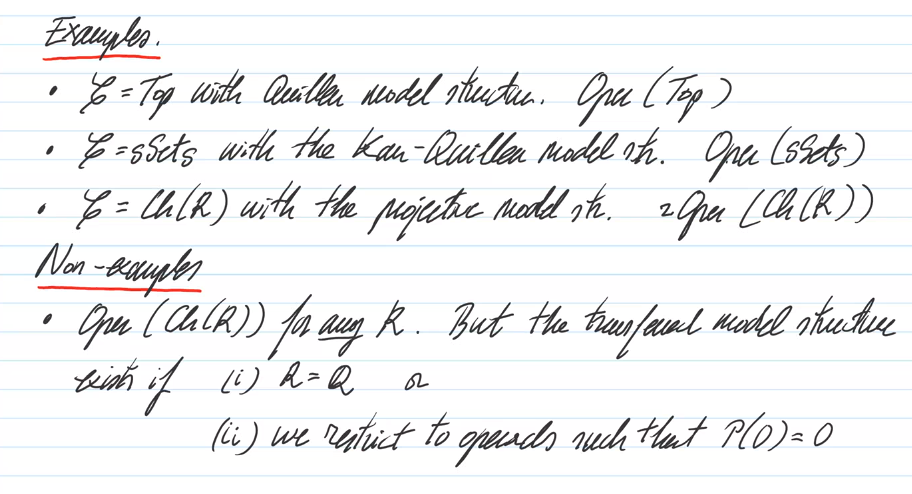 Examples.
• 𝒞 = Top with Quillen model structure. Oper (Top)
• 𝒞 = sSets with the Kan-Quillen model str. Oper (sSets)
• 𝒞 = Ch(R) with the projective model str. Oper (Ch(R))
Non-examples
• Oper (Ch(R)) for any R. But the transferred model structure
exists if (i) R = Q or
(ii) we restrict to operads such that P(0) = 0